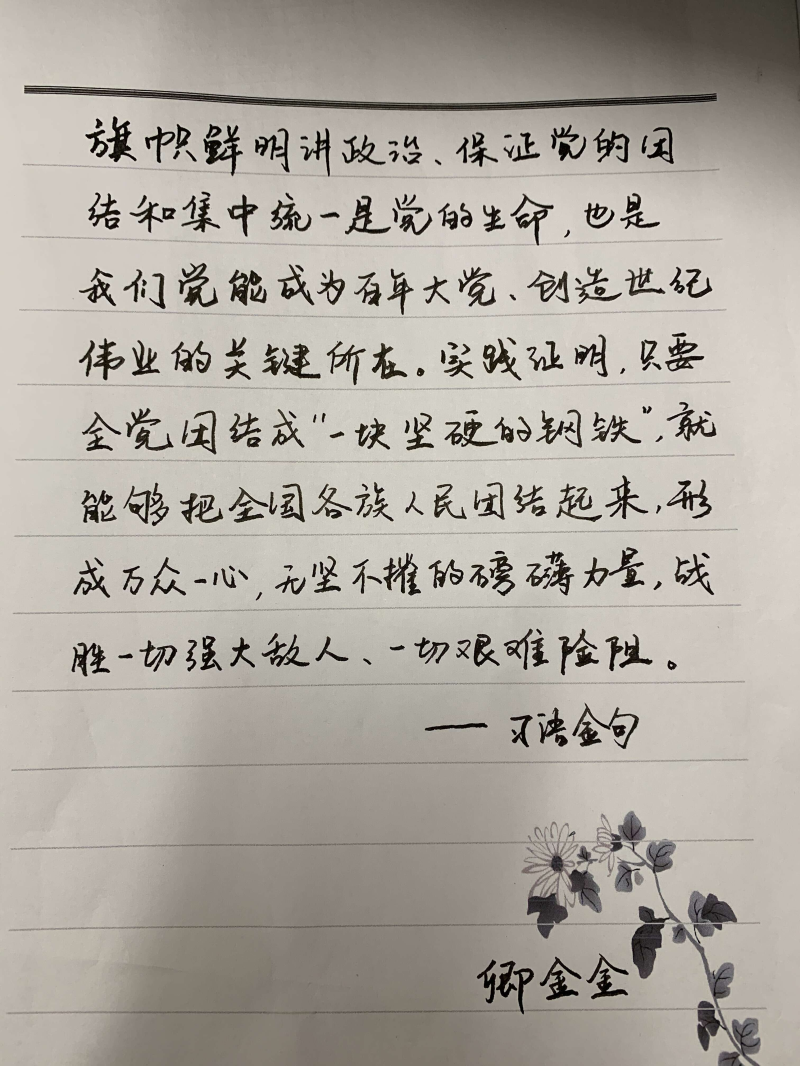 旗帜鲜明讲政治、保证党的团
结和集中统一是党的生命,也是
我们党能成为百年大党、创造世纪
伟业的关键所在。实践证明,只要
全党团结成“一块坚硬的钢铁”,就
能够把全国各族人民团结起来,形
成万众一心,无坚不摧的磅礴力量,战
胜一切强大敌人、一切艰难险阻。
——习语金句
卿金金